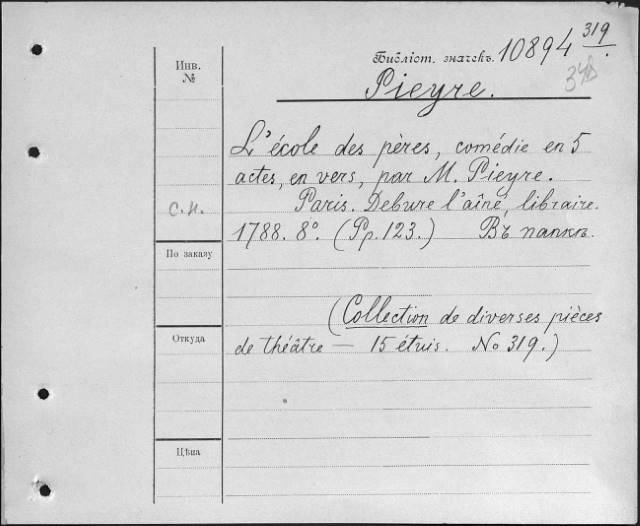 Инв. №
Библіот. значекъ. 10894 319/.
Pieyre.
L'école des pères, comédie en 5
actes, en vers, par M. Pieyre.
Paris. Debure l'aîné, libraire.
1788. 8°. (Pp. 123.) Въ папкѣ.
С.Н.
По заказу
(Collection de diverses pièces
de théâtre — 15 étuis. No 319.)
Откуда
Цѣна